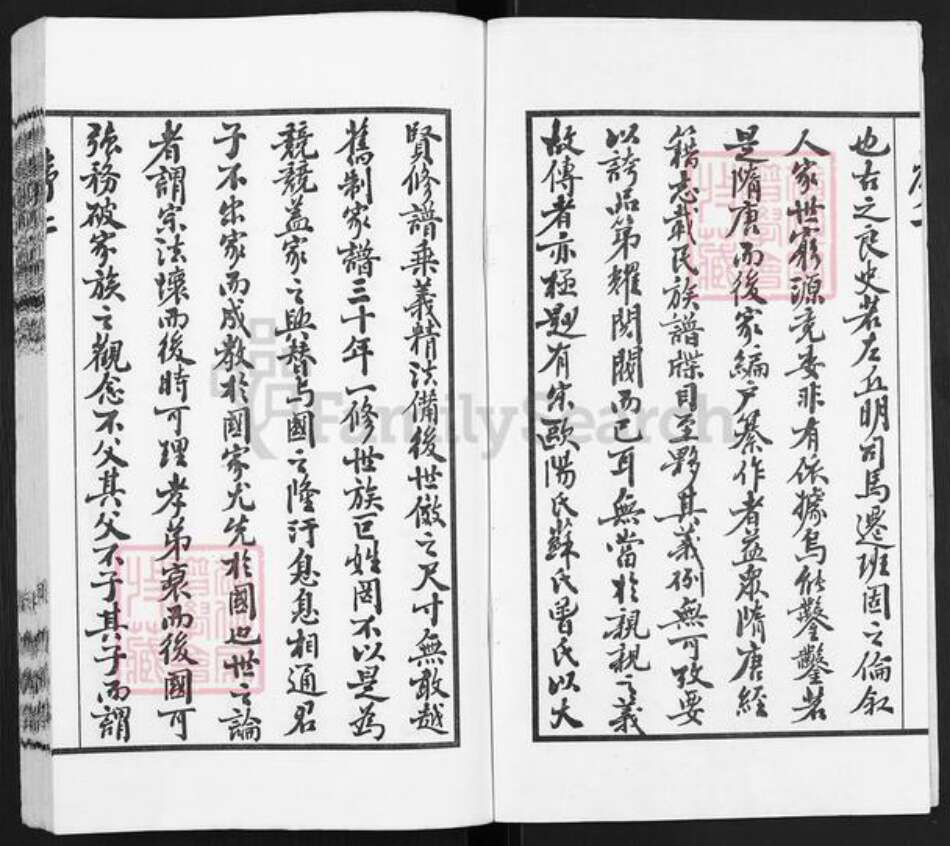 也古之良史若左丘明司馬遷班固之倫叙
人家世窮源竟委非有依據烏能鑿鑿若
是隋唐而後家編戶纂作者益衆隋唐經
籍志載氏族譜牒目至夥其義例無可攷要
以誇品第耀閥閱而已耳無當於親親之義
故傳者亦極尟有宋歐陽氏蘇氏曾氏以大
賢修譜乘義精法備後世倣之尺寸無敢越
舊制家譜三十年一修世族巨姓罔不以是為
競競蓋家之興替與國之隆汙息息相通君
子不出家而成教於國家尤先於國也世之論
者謂宗法壞而後時可理孝弟衰而後國可
強務破家族之觀念不父其父不子其子而謂
FamilySearch